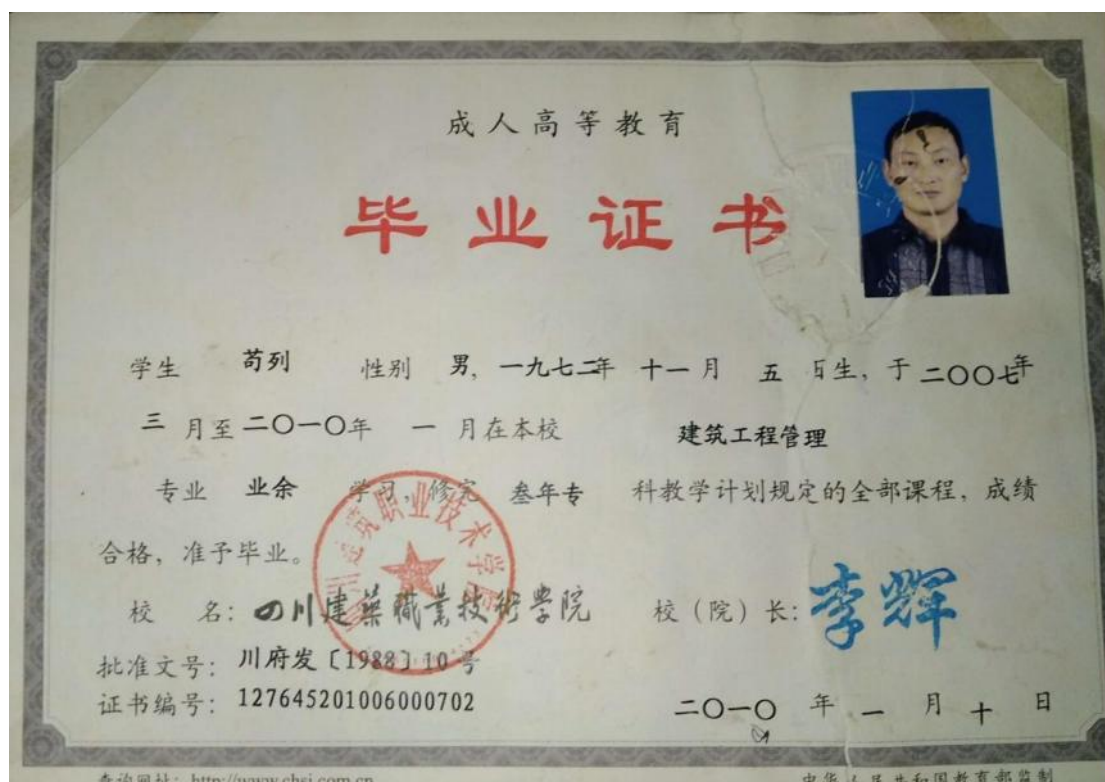 成人高等教育
毕业证书
学生 苟列 性别 男, 一九七二年 十一月 五 日生, 于 二〇〇七年
三 月至 二〇一〇年 一 月在本校 建筑工程管理
专业 业余 学习, 修完 叁年专 科教学计划规定的全部课程, 成绩
合格, 准予毕业。
四川建筑职业技术学院
校 名: 四川建築職業技術學院 校(院)长: 李辉
批准文号: 川府发〔1988〕10号
证书编号: 127645201006000702 二〇一〇 年 一 月 十 日
查询网址: http://www.chsi.com.cn 中华人民共和国教育部监制